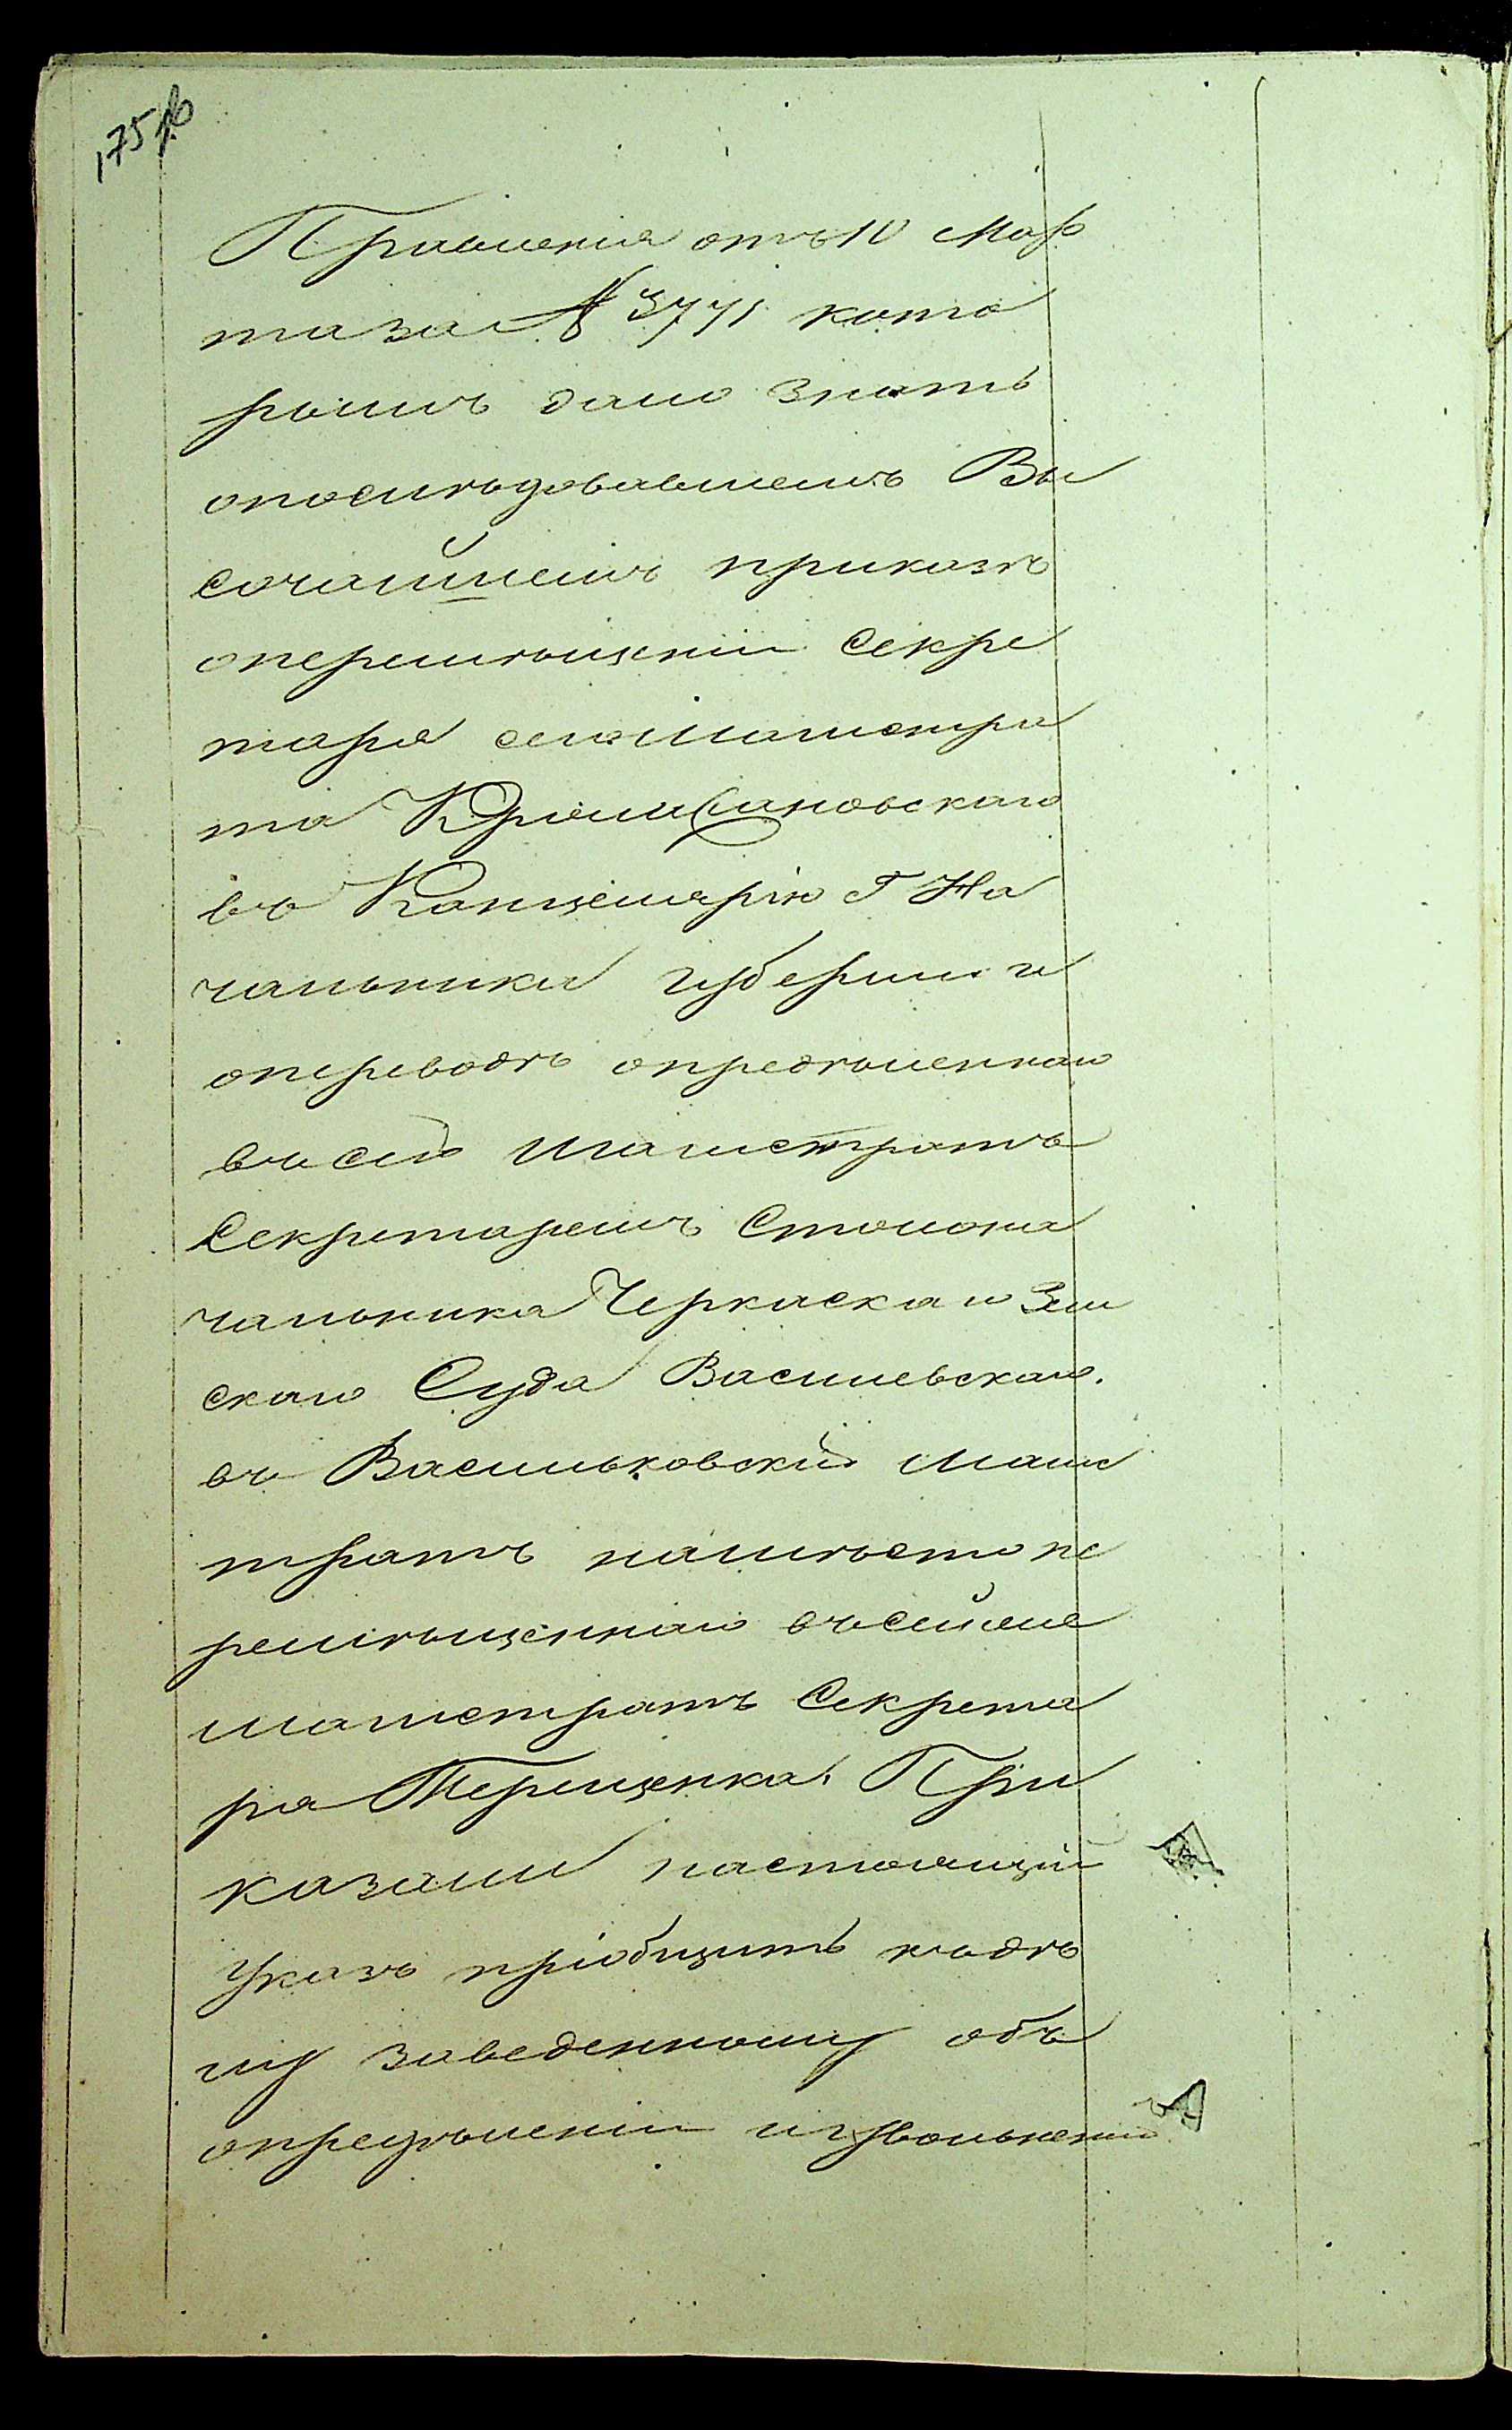 175 об
Правленія отъ 10 Мар
та за № 3771 кото
рымъ дано знать
опослѣдовавшемъ Вы
сочайшемъ приказѣ
оперемѣщеніи Секре
таря сего Магистра
та
въ Канцелярію Г На
чальника губерніи и
опереводѣ опредѣленнаго
въ сей магистратъ
Секретаремъ Столона
чальника Черкаскаго Зем
скаго Суда Василевскаго.
въ Васильковскій Магис
тратъ намѣсто пе
ремѣщеннаго въсейже
магистратъ Секрета
ра Терещенка. При
казали настоящій
Указъ пріобщить къдѣ
лу заведенному объ
опредѣленіи иувольненіи